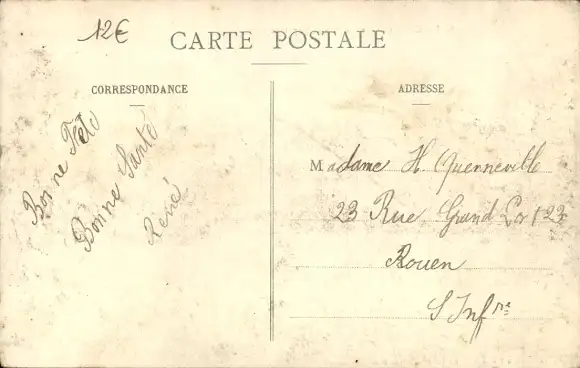 12€
CARTE POSTALE
CORRESPONDANCE
Bonne Fête
Bonne Santé
René
ADRESSE
Madame H Quenneville
23 Rue Grand 23
Rouen
S Infre